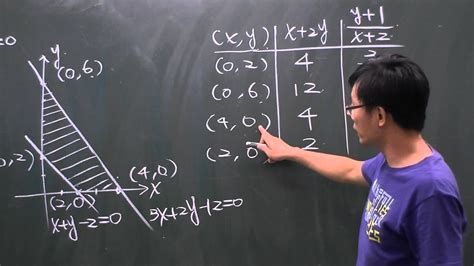 =0
y
(0,6)
0,2)
(4,0)
x
(2,0)
x+y-2=0
3x+2y-12=0
(x,y) x+2y y+1
x+2
(0,2) 4
(0,6) 12
(4,0) 4
(2,0 2